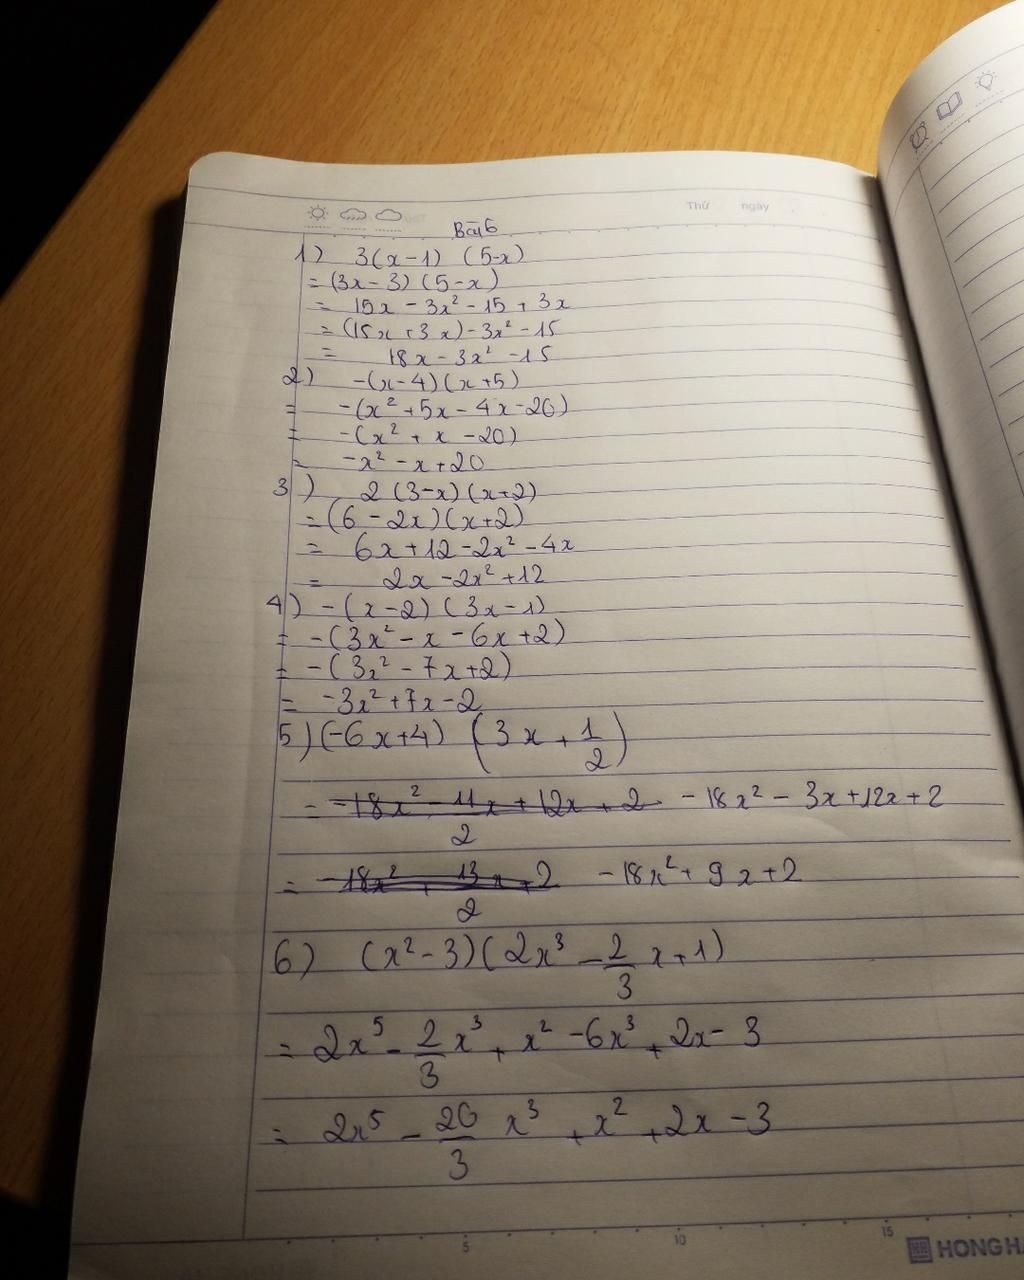 Thứ ngày
Bài 6
1) 3(x-1) (5-x)
= (3x-3) (5-x)
= 15x - 3x² - 15 + 3x
= (15x + 3x) - 3x² - 15
= 18x - 3x² - 15
2) -(x-4)(x+5)
= -(x² + 5x - 4x - 20)
= -(x² + x - 20)
= -x² - x + 20
3) 2(3-x)(x+2)
= (6-2x)(x+2)
= 6x + 12 - 2x² - 4x
= 2x - 2x² + 12
4) -(x-2)(3x-1)
= -(3x² - x - 6x + 2)
= -(3x² - 7x + 2)
= -3x² + 7x - 2
5) (-6x+4) (3x + 1/2)
= -18x² - 11x + 12x + 2 / 2 - 18x² - 3x + 12x + 2
= -18x² + 13x + 2 / 2 - 18x² + 9x + 2
6) (x² - 3)(2x³ - 2/3 x + 1)
= 2x⁵ - 2/3 x³ + x² - 6x³ + 2x - 3
= 2x⁵ - 20/3 x³ + x² + 2x - 3
5 10 15
HONG HA